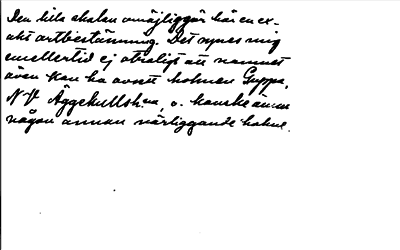 Den lilla skalan omöjliggör här en ex-
akt ortbestämning. Det synes mig
emellertid ej otroligt att namnet
även kan ha avsett holmen Guppa,
N V Äggskullsh:na, o. kanske även
någon annan närliggande holme.